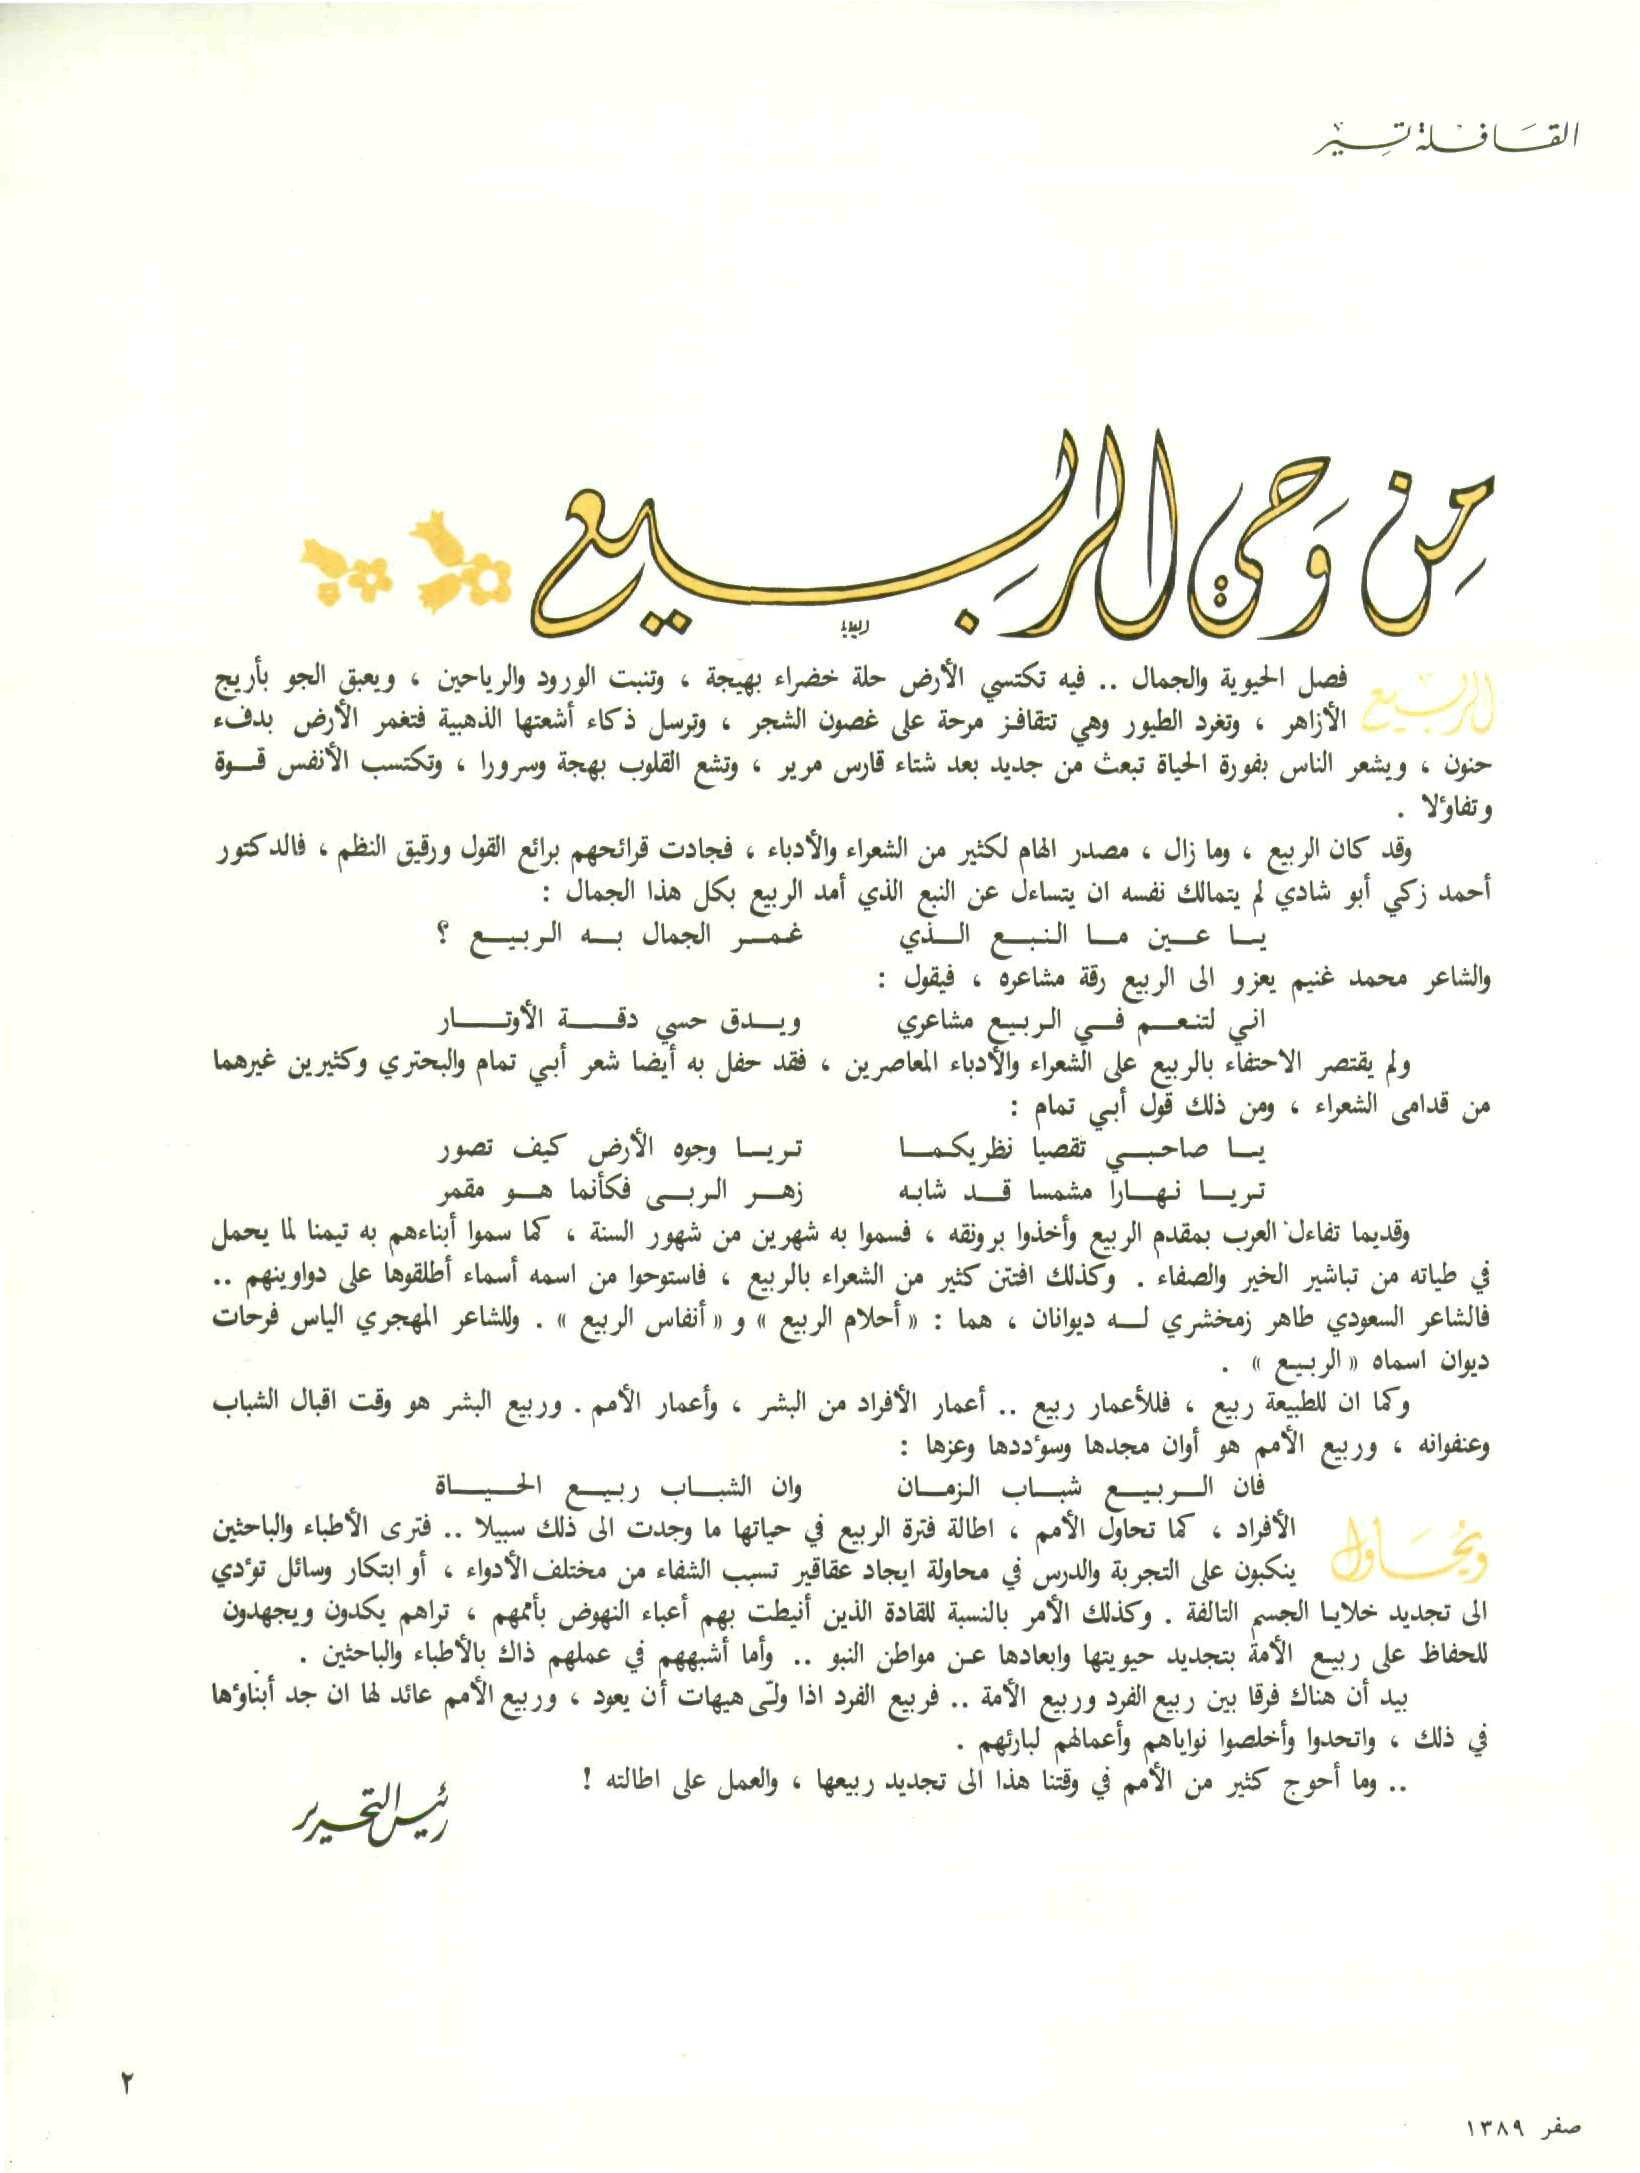 القافلة تسير
من وحي الربيع
الربيع فصل الحيوية والجمال .. فيه تكتسي الأرض حلة خضراء بهيجة ، وتنبت الورود والرياحين ، ويعبق الجو بأريج
الأزاهر ، وتغرد الطيور وهي تتقافز مرحة على غصون الشجر ، وترسل ذكاء أشعتها الذهبية فتغمر الأرض بدفء
حنون ، ويشعر الناس بفورة الحياة تبعث من جديد بعد شتاء قارس مرير ، وتشع القلوب بهجة وسرورا ، وتكتسب الأنفس قوة
وتفاؤلا .
وقد كان الربيع ، وما زال ، مصدر الهام لكثير من الشعراء والأدباء ، فجادت قرائحهم برائع القول ورقيق النظم ، فالدكتور
أحمد زكي أبو شادي لم يتمالك نفسه ان يتساءل عن النبع الذي أمد الربيع بكل هذا الجمال :
يا عين ما النبع الذي غمر الجمال به الربيع ؟
والشاعر محمد غنيم يعزو الى الربيع رقة مشاعره ، فيقول :
اني لتنعم في الربيع مشاعري ويدق حسي دقة الأوتار
ولم يقتصر الاحتفاء بالربيع على الشعراء والأدباء المعاصرين ، فقد حفل به أيضا شعر أبي تمام والبحتري وكثيرين غيرهما
من قدامى الشعراء ، ومن ذلك قول أبي تمام :
يا صاحبي تقصيا نظريكما تريا وجوه الأرض كيف تصور
تريا نهارا مشمسا قد شابه زهر الربى فكأنما هو مقمر
وقديما تفاءل العرب بمقدم الربيع وأخذوا برونقه ، فسموا به شهرين من شهور السنة ، كما سموا أبناءهم به تيمنا لما يحمل
في طياته من تباشير الخير والصفاء . وكذلك افتتن كثير من الشعراء بالربيع ، فاستوحوا من اسمه أسماء أطلقوها على دواوينهم ..
فالشاعر السعودي طاهر زمخشري له ديوانان ، هما : « أحلام الربيع » و « أنفاس الربيع » . وللشاعر المهجري الياس فرحات
ديوان اسماه « الربيع » .
وكما ان للطبيعة ربيع ، فللأعمار ربيع .. أعمار الأفراد من البشر ، وأعمار الأمم . وربيع البشر هو وقت اقبال الشباب
وعنفوانه ، وربيع الأمم هو أوان مجدها وسؤددها وعزها :
فان الربيع شباب الزمان وان الشباب ربيع الحياة
ويحاول الأفراد ، كما تحاول الأمم ، اطالة فترة الربيع في حياتها ما وجدت الى ذلك سبيلا .. فترى الأطباء والباحثين
ينكبون على التجربة والدرس في محاولة ايجاد عقاقير تسبب الشفاء من مختلف الأدواء ، أو ابتكار وسائل تؤدي
الى تجديد خلايا الجسم التالفة . وكذلك الأمر بالنسبة للقادة الذين أنيطت بهم أعباء النهوض بأممهم ، تراهم يكدون ويجهدون
للحفاظ على ربيع الأمة بتجديد حيويتها وابعادها عن مواطن النبو .. وأما أشبههم في عملهم ذاك بالأطباء والباحثين .
بيد أن هناك فرقا بين ربيع الفرد وربيع الأمة .. فربيع الفرد اذا ولّى هيهات أن يعود ، وربيع الأمم عائد لها ان جد أبناؤها
في ذلك ، واتحدوا وأخلصوا نواياهم وأعمالهم لبارئهم .
.. وما أحوج كثير من الأمم في وقتنا هذا الى تجديد ربيعها ، والعمل على اطالته !
رئيس التحرير
٢
صفر ١٣٨٩